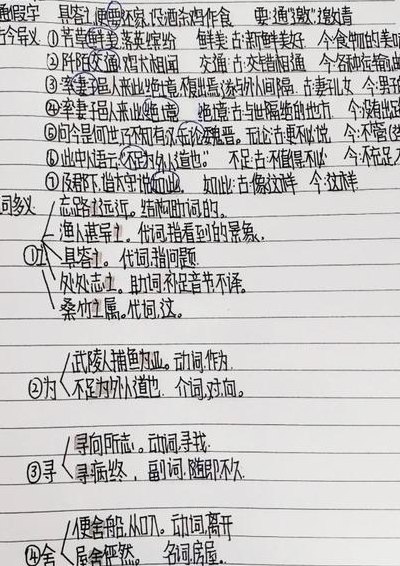 通假字 具答之,便要还家,设酒杀鸡作食 要:通"邀",邀请
古今异义 ①芳草鲜美,落英缤纷 鲜美:古:新鲜美好 今:食物的美味
②阡陌交通,鸡犬相闻 交通:古:交错相通 今:各种运输
③率妻子邑人来此绝境,不复出焉,遂与外人间隔 古:妻子儿女 今:男子
④率妻子邑人来此绝境 绝境:古:与世隔绝的地方 今:没有出路
⑤问今是何世,乃不知有汉,无论魏晋。无论:古:更不必说 今:不管
⑥此中人语云:"不足为外人道也。" 不足:古:不值得,不必 今:不充足
⑦及郡下,诣太守,说如此。 如此:古:像这样 今:这样
词多义
忘路之远近。结构助词,的。
渔人甚异之。代词,指看到的景象.
①之 具答之。代词,指问题.
处处志之。助词,补足音节,不译。
桑竹之属。代词,这。
武陵人捕鱼为业。动词,作为.
②为
不足为外人道也. 介词,对,向。
寻向所志。动词,寻找.
③寻
寻病终, 副词,随即,不久.
便舍船,从口入。动词,离开
④舍 屋舍俨然。 名词,房屋。